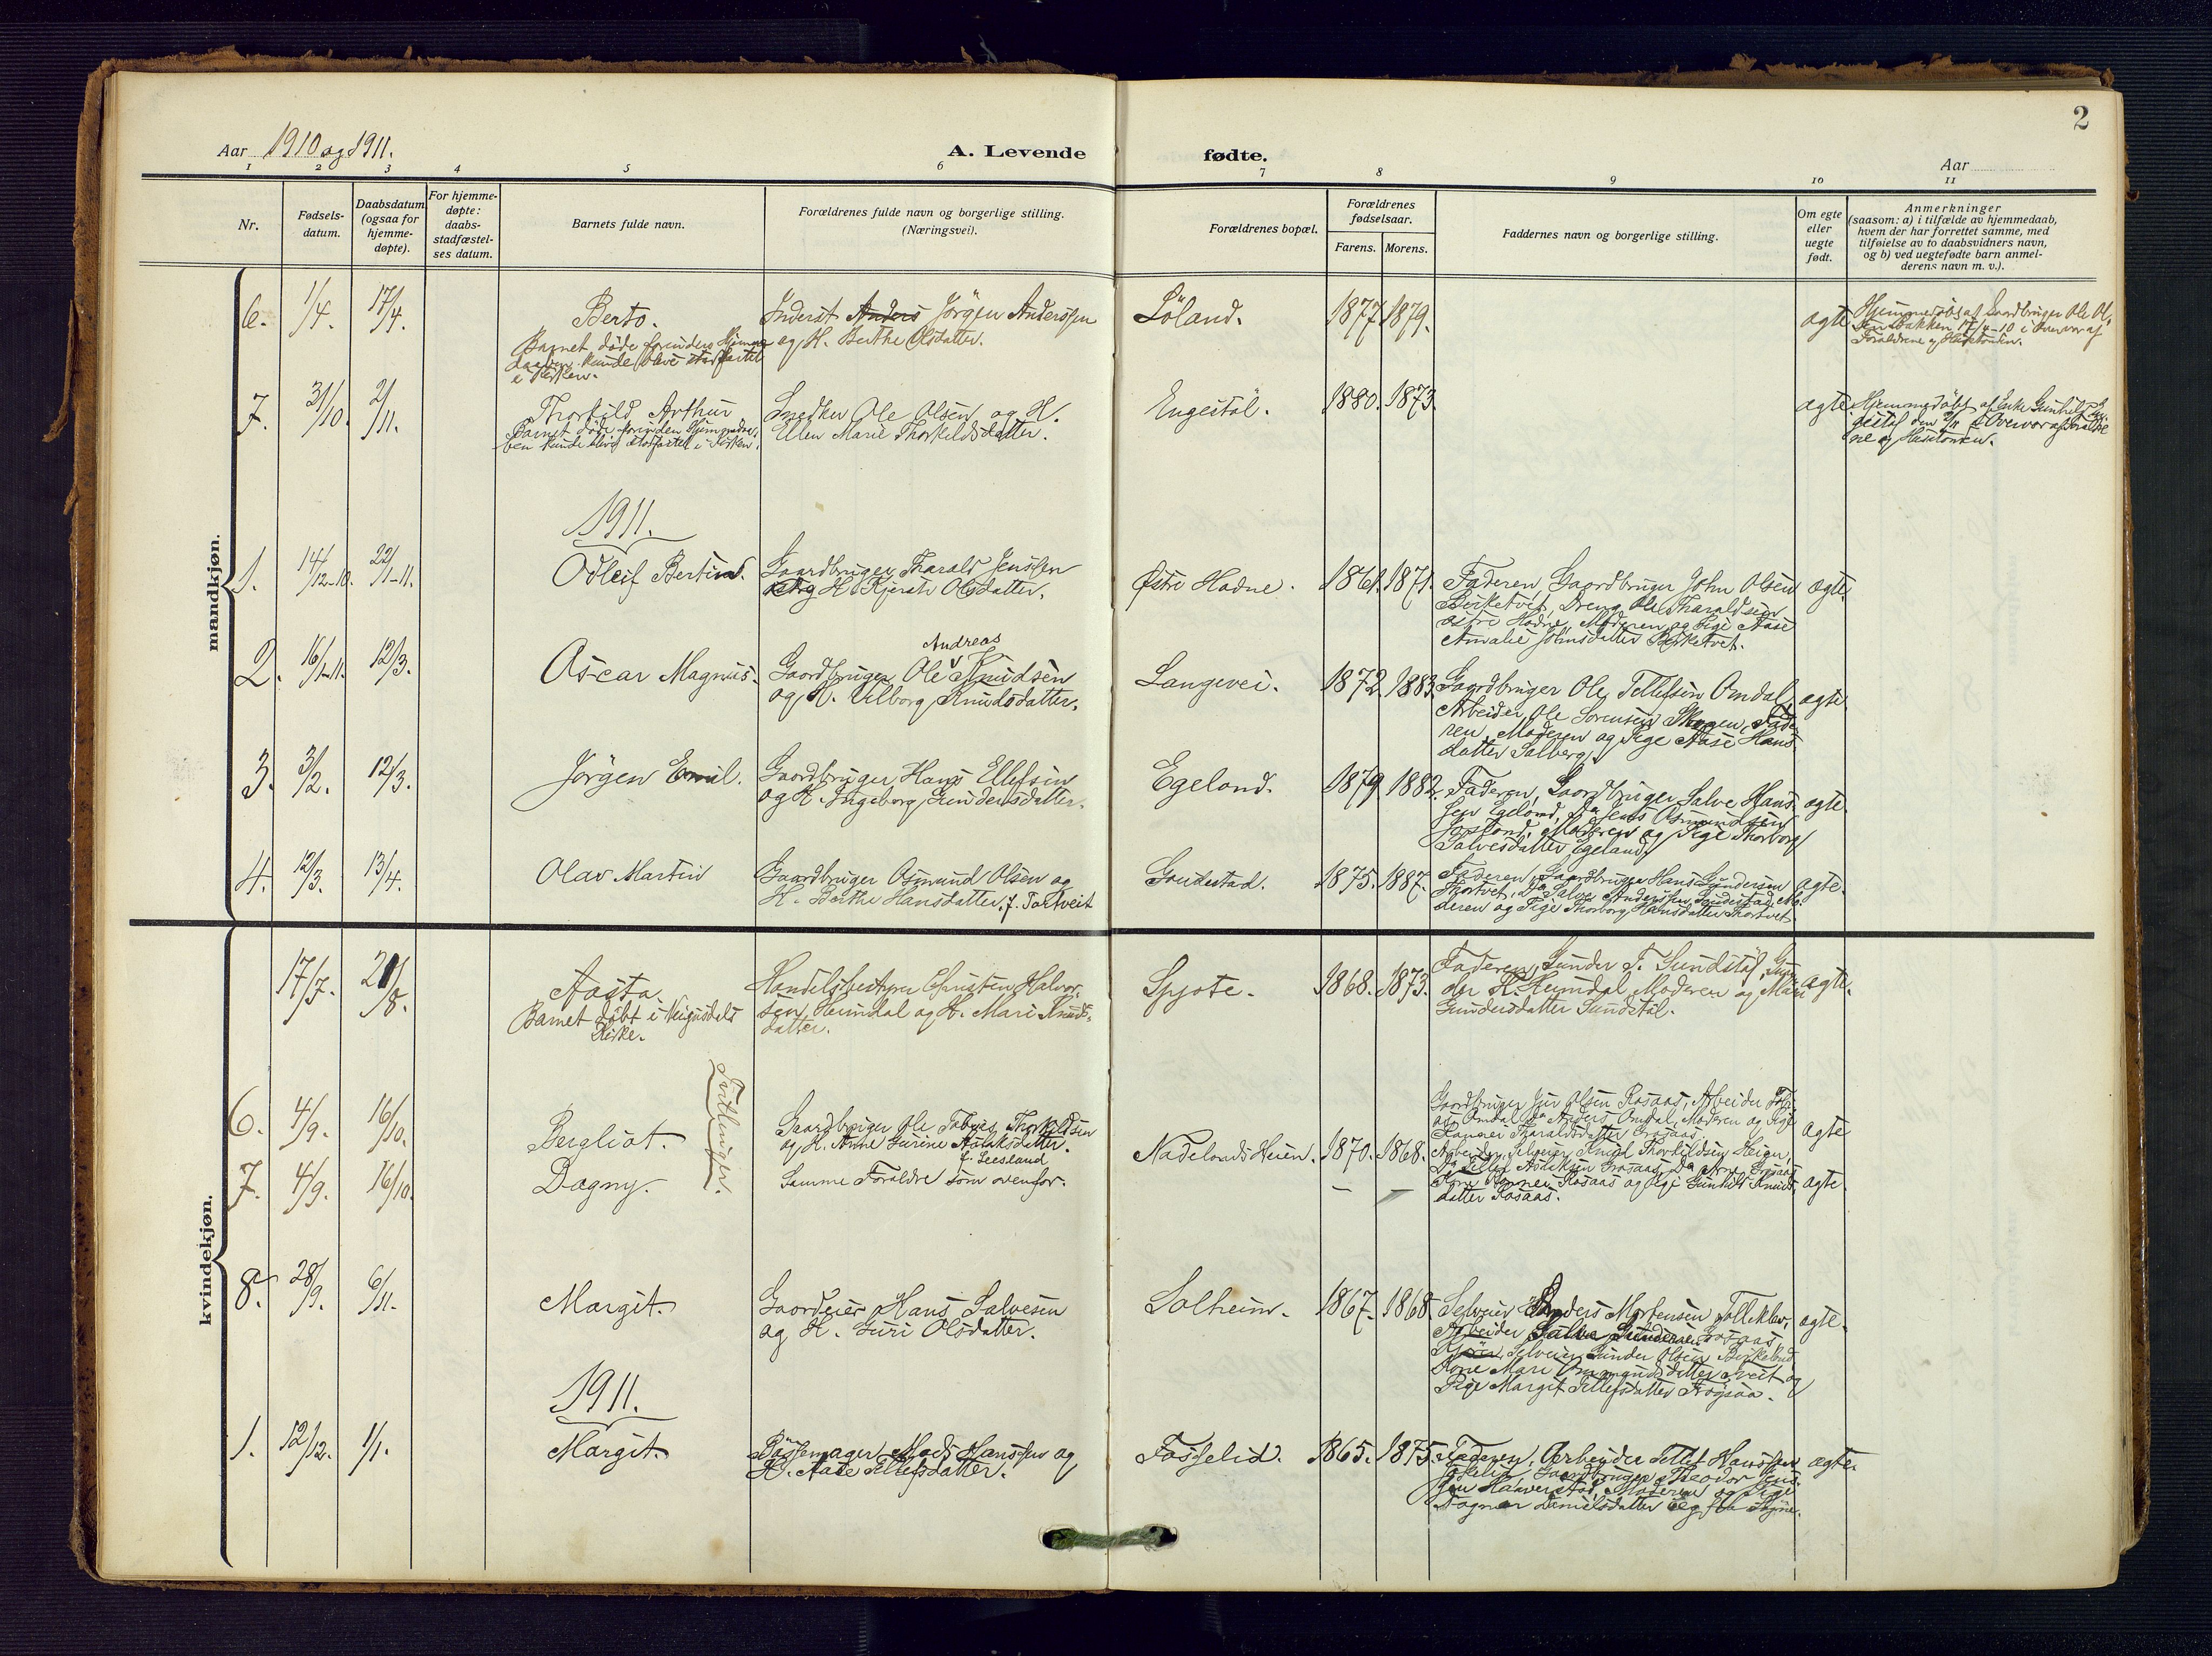 2
Aar 1910 og 1911.
A. Levende fødte.
Aar
1 2 3 4 5 6 7 8 9 10 11
Nr.
Fødsels-
datum.
Daabsdatum
(ogsaa for
hjemme-
døpte).
For hjemme-
døpte:
daabs-
stadfæstel-
ses datum.
Barnets fulde navn.
Forældrenes fulde navn og borgerlige stilling.
(Næringsvei).
Forældrenes bopæl.
Forældrenes
fødselsaar.
Farens. Morens.
Faddernes navn og borgerlige stilling.
Om egte
eller
uegte
født.
Anmerkninger
(saasom: a) i tilfælde av hjemmedaab,
hvem der har forrettet samme, med
tilføielse av to daabsvidners navn,
og b) ved uegtefødte barn anmel-
derens navn m. v.).
mandkjøn.
6. 1/4. 17/4. Berto.
Barnet døde forinden Hjemme
daaben kunde blive stadfæstet
i Kirken.
Inderst Anders Jörgen Anderssen
og H. Berthe Olsdatter.
Löland. 1877. 1879. ægte
Hjemmedöbt af Gaardbruger Ole Ol.
17/4-10 i Overvær af
Forældrene og
7. 31/10. 2/11. Thorkild Arthur
Barnet döde forinden Hjemmedaa-
ben kunde blive stadfæstet i Kirken.
Snedker Ole Olsen og H.
Ellen Marie Thorkildsdatter.
Engestöl. 1880. 1873. ægte.
Hjemmedöbt af Enke Gunhild En-
gestøl den 2/11 i Overvær af Foræld
ne og
1911.
1. 14/12-10. 22/1-11. Odleif Bertin.
Gaardbruger Tharald Jenssen
og H. Kjersti Olsdatter.
Østre Hodne. 1861. 1871.
Faderen, Gaardbruger John Olsen
Birketvet, Dreng Ole Tharaldsen
östre Hodne, Moderen og Pige Aase
Amalie Johnsdatter Birketvet.
ægte.
2. 16/1-11. 12/3. Oscar Magnus.
Andreas
Gaardbruger Ole Knudsen
og H. Vilborg Knudsdatter.
Langevei. 1872. 1883.
Gaardbruger Ole Tellefsen Omdal,
Arbeider Ole Sorensen Skogen, Fade-
ren, Moderen og Pige Aase Hans
datter Solberg.
ægte.
3. 3/2. 12/3. Jörgen Emil.
Gaardbruger Hans Ellefsen
og H. Ingeborg Gundersdatter.
Egeland. 1879. 1882.
Faderen, Gaardbruger Salve Hans
sen Egeland, Do Jens Osmundsen
Moderen og Pige Thorborg
Salvesdatter Egeland.
ægte
4. 12/3. 13/4. Olav Martin
Gaardbruger Osmund Olsen og
H. Berthe Hansdatter, f. Tortveit
Goudestad. 1875. 1887.
Faderen, Gaardbruger Hans Gundersen
Thortvet, Do Salve Anderssen Goudestad, Mo-
deren og Pige Thorborg Hansdatter Thortvet
ægte.
kvindekjøn.
17/7. 20/8. Aasta
Barnet döbt i Veigusdals
Kirke.
Handelsbestyrer Christen Halvor-
sen Heimdal og H. Mari Knuds-
datter.
Spjote. 1868. 1873.
Faderen, Gunder T. Sundstöl, Gun-
der K. Heimdal Moderen og Mari
Gundersdatter Sundstöl.
ægte.
Tvillinger.
6. 4/9. 16/10. Bergliot.
Gaardbruger Ole Tobias Thorkildsen
og H. Anne Gurine Aanuksdatter.
f. Leesland
Nadelands Heien. 1870. 1868.
Gaardbruger Olsen Rosaas, Arbeider
Omdal, Do Anders Omdal, Moderen og Pige
Tharaldsdatter Grosaas.
ægte
7. 4/9. 16/10. Dagny.
Samme Forældre som ovenfor.
– –
Arbeider, Selveier Knud Thorkildsen Heien,
Do Tellef Aslaksen Grosaas, Do Arne Grosaas
Kone Rosaas og Pige Gunhild Knuds
datter Rosaas.
ægte.
8. 28/9. 6/11. Margit.
Gaardeier Hans Salvesen
og H. Guri Olsdatter.
Solheim. 1867. 1868.
Selveier Anders Mortensen
Arbeider Salve Gundersen Grosaas,
Selveier Gunder Olsen Birkelund,
Kone Mari Omamundsdatter Tveit og
Pige Margit Tellefsdatter Frøysaa.
ægte.
1911.
1. 12/12. 1/1. Margit.
Bøssemager Mads Hanssen og
H. Aase Tellefsdatter.
Fosselid. 1865. 1875.
Faderen, Arbeider Tellef Hanssen
Foselid, Gaardbruger Theodor Jens-
sen Haaverstad, Moderen og Pige
Dagmar Danielsdatter
ægte.